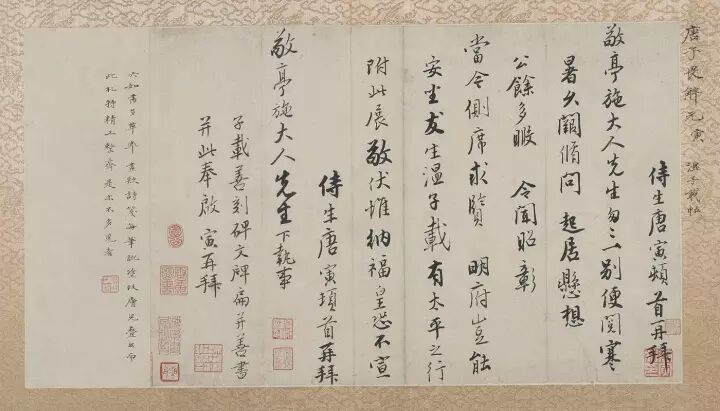 唐子畏解元寅 溫子載帖
侍生唐寅頓首再拜
敬亭施大人先生匆匆一別便閱寒
暑久闊脩問 起居懸想
公餘多暇 令聞昭彰
當今側席求賢 明府豈能
安坐友生溫子載有太平之行
附此展敬伏惟納福皇恐不宣
侍生唐寅頓首再拜
敬亭施大人先生下執事
子載善刻碑文牌扁并善書
并此奉啟 寅再拜
六如書多草率畫款詩箋每筆
此札特精工整齊是亦不多見者